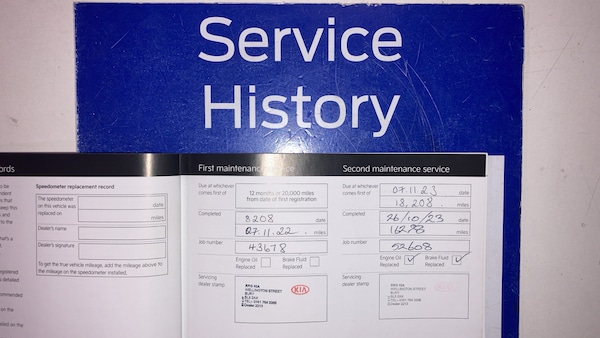 Service
History
ords
Speedometer replacement record
The speedometer
on this vehicle was
replaced on
date
miles
Dealer's name
Dealer's signature
To get the true vehicle mileage, add the mileage above to
the mileage on the speedometer installed.
First maintenance service
Due at whichever
comes first of
12 months or 20,000 miles
from date of first registration
Completed
8208 date
07.11.22 miles
Job number
43678
Engine Oil
Replaced
Brake Fluid
Replaced
Servicing
dealer stamp
KIA
WELLINGTON STREET
BURY
KIA
Second maintenance service
Due at whichever
comes first of
07.11.23 date
18,208 miles
Completed
26/10/23 date
16278 miles
Job number
52608
Engine Oil
Replaced
Brake Fluid
Replaced
Servicing
dealer stamp
WELLINGTON STREET
BURY